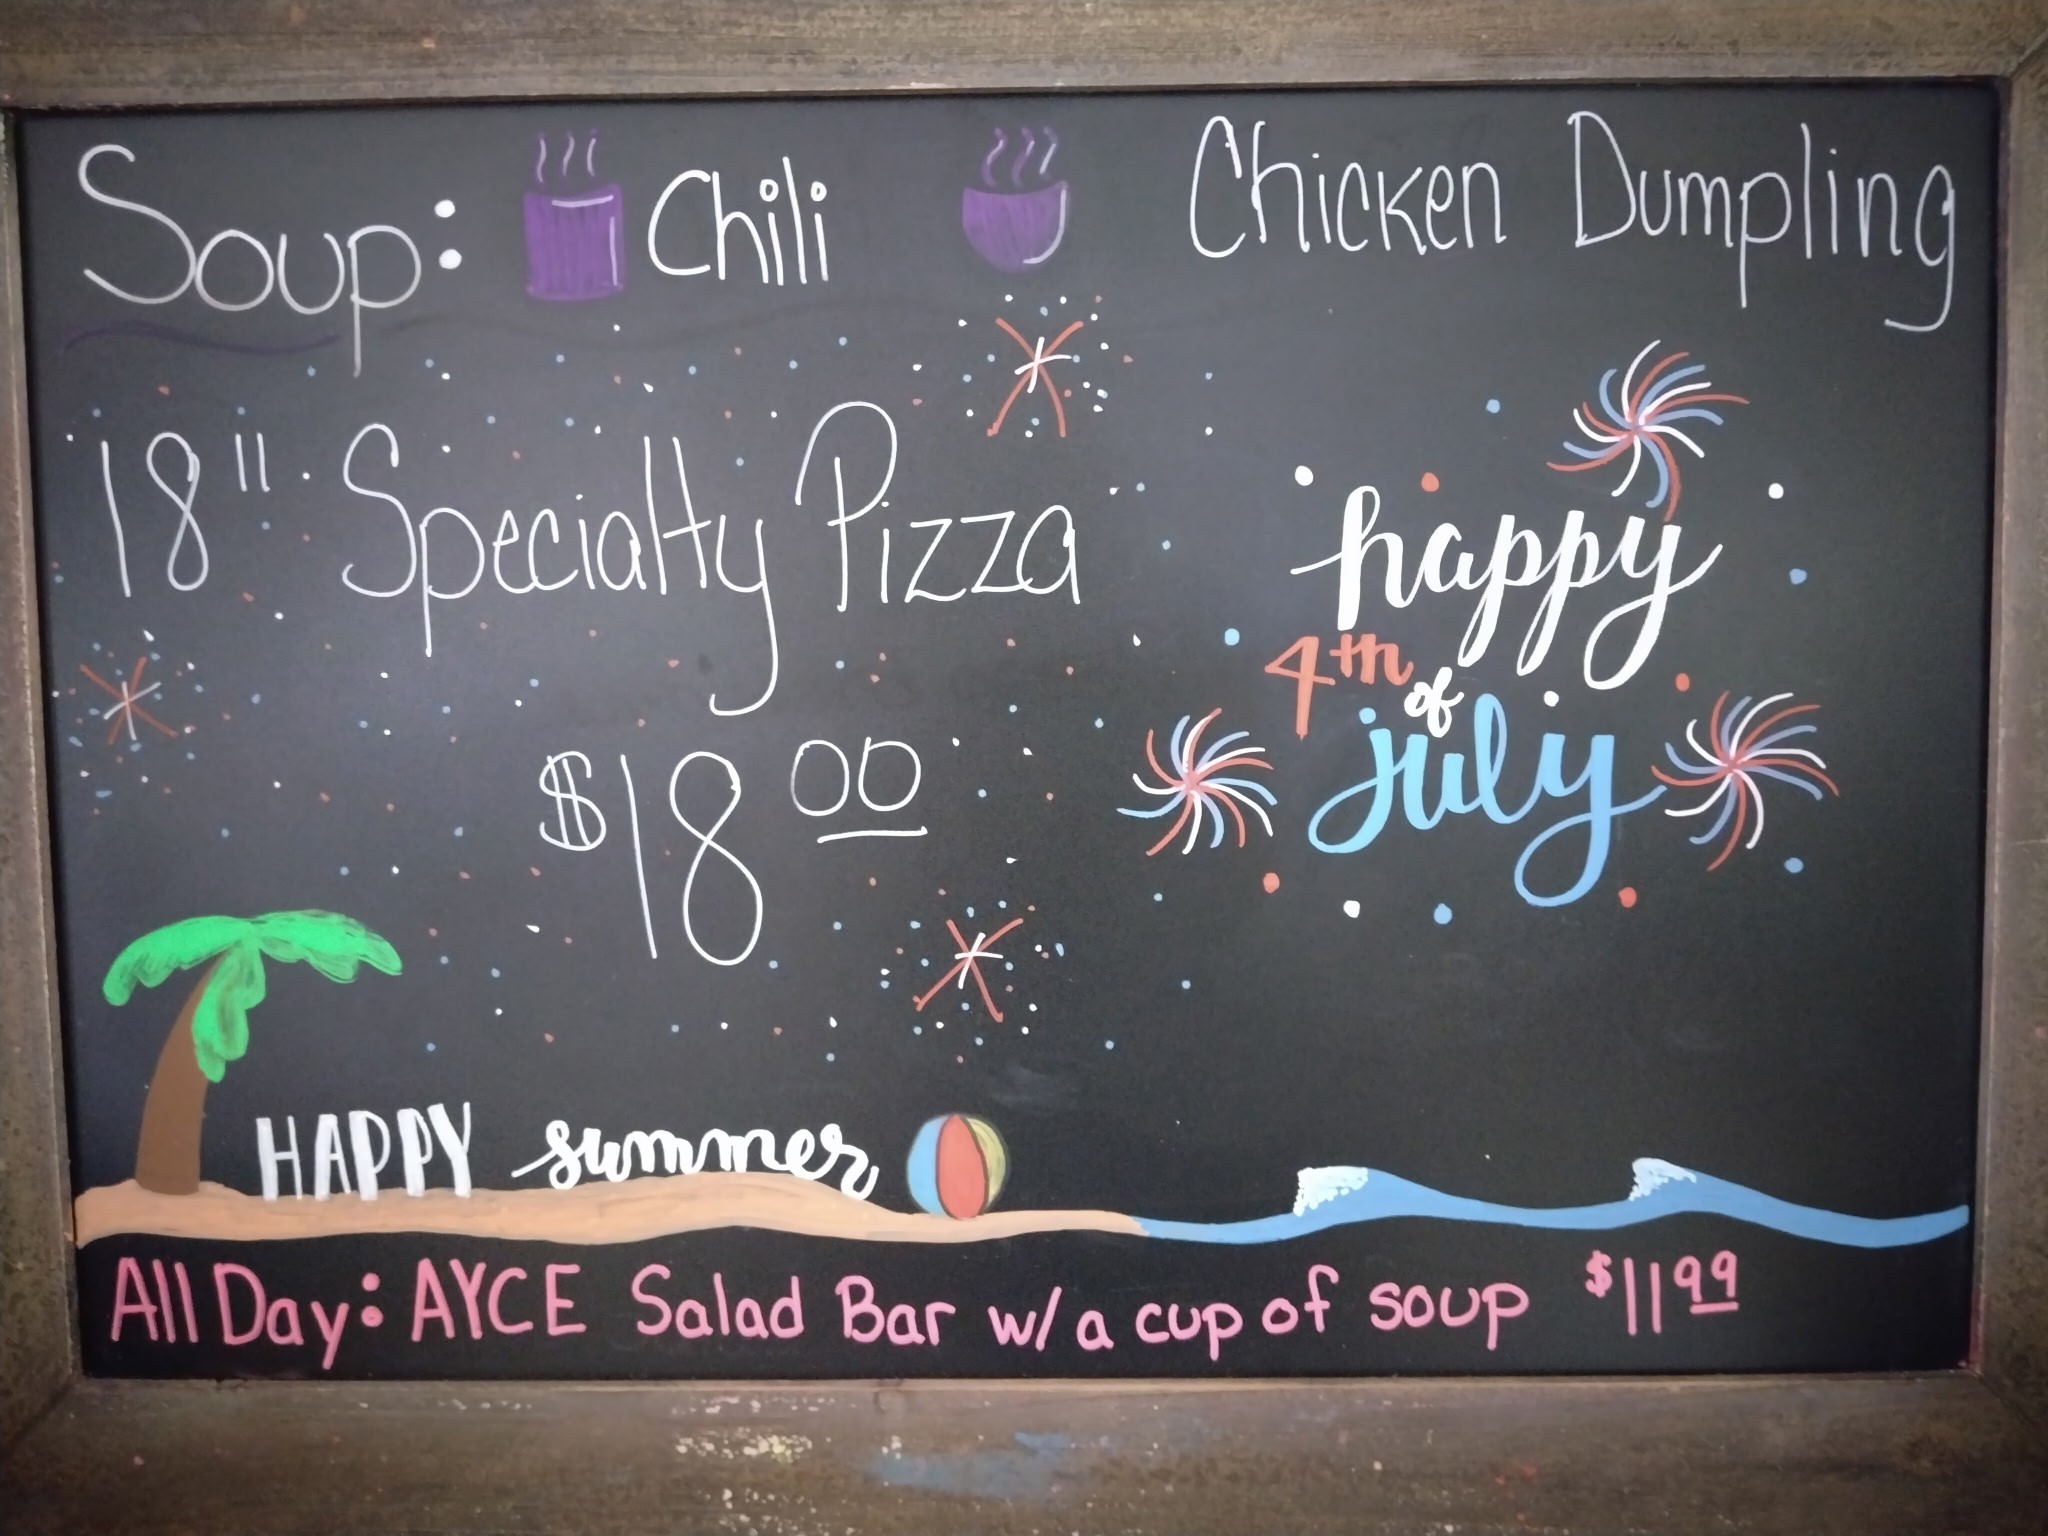 Soup: Chili Chicken Dumpling
18" Specialty Pizza
$18.00
happy
4th of
july
HAPPY summer
All Day: AYCE Salad Bar w/ a cup of soup $11.99